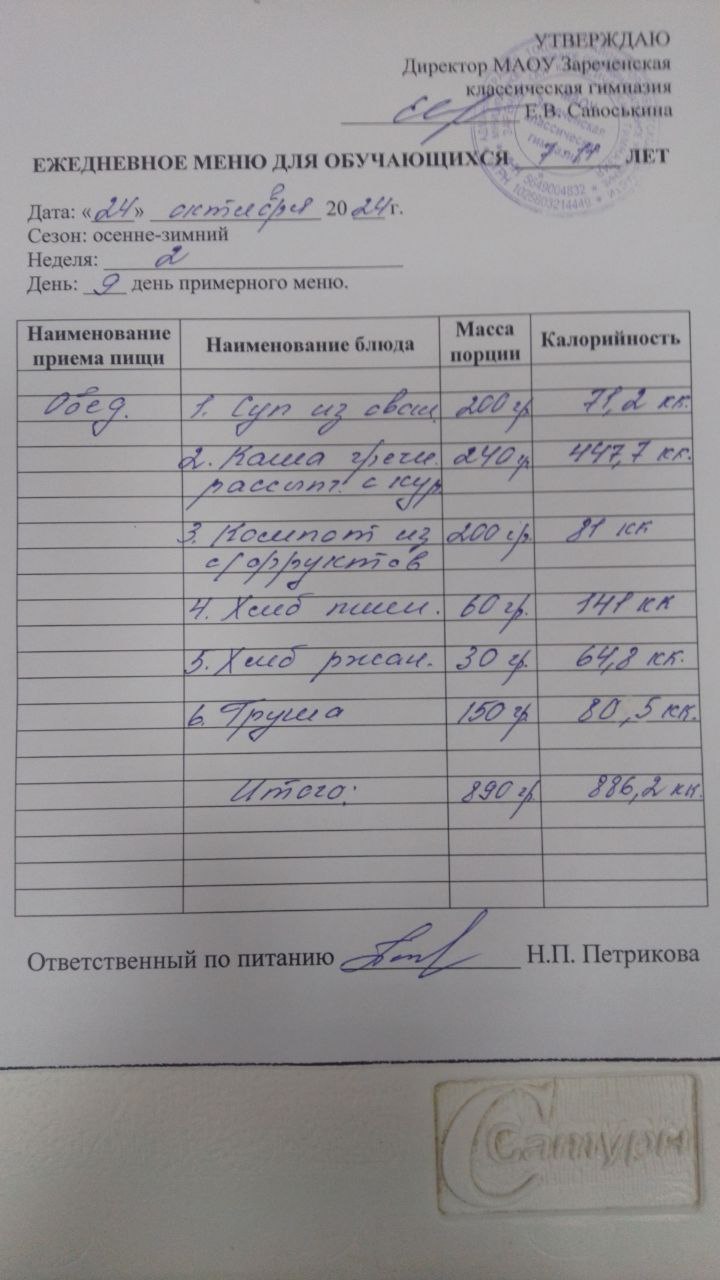 УТВЕРЖДАЮ
Директор МАОУ Зареченская
классическая гимназия
Е.В. Савоськина
ЕЖЕДНЕВНОЕ МЕНЮ ДЛЯ ОБУЧАЮЩИХСЯ 7-11 ЛЕТ
Дата: «24» октября 2024г.
Сезон: осенне-зимний
Неделя: 2
День: 9 день примерного меню.
Наименование приема пищи Наименование блюда Масса порции Калорийность
Обед. 1. Суп из овощ 200 гр 71,2 кк.
2. Каша гречн. 240 гр 447,7 кк.
рассыпт. с кур
3. Компот из 200 гр 81 кк
с/фруктов
4. Хлеб пшен. 60 гр. 141 кк
5. Хлеб ржан. 30 гр. 64,8 кк.
6. Груша 150 гр 80,5 кк.
Итого: 890 гр. 886,2 кк.
Ответственный по питанию Н.П. Петрикова
Сатурн